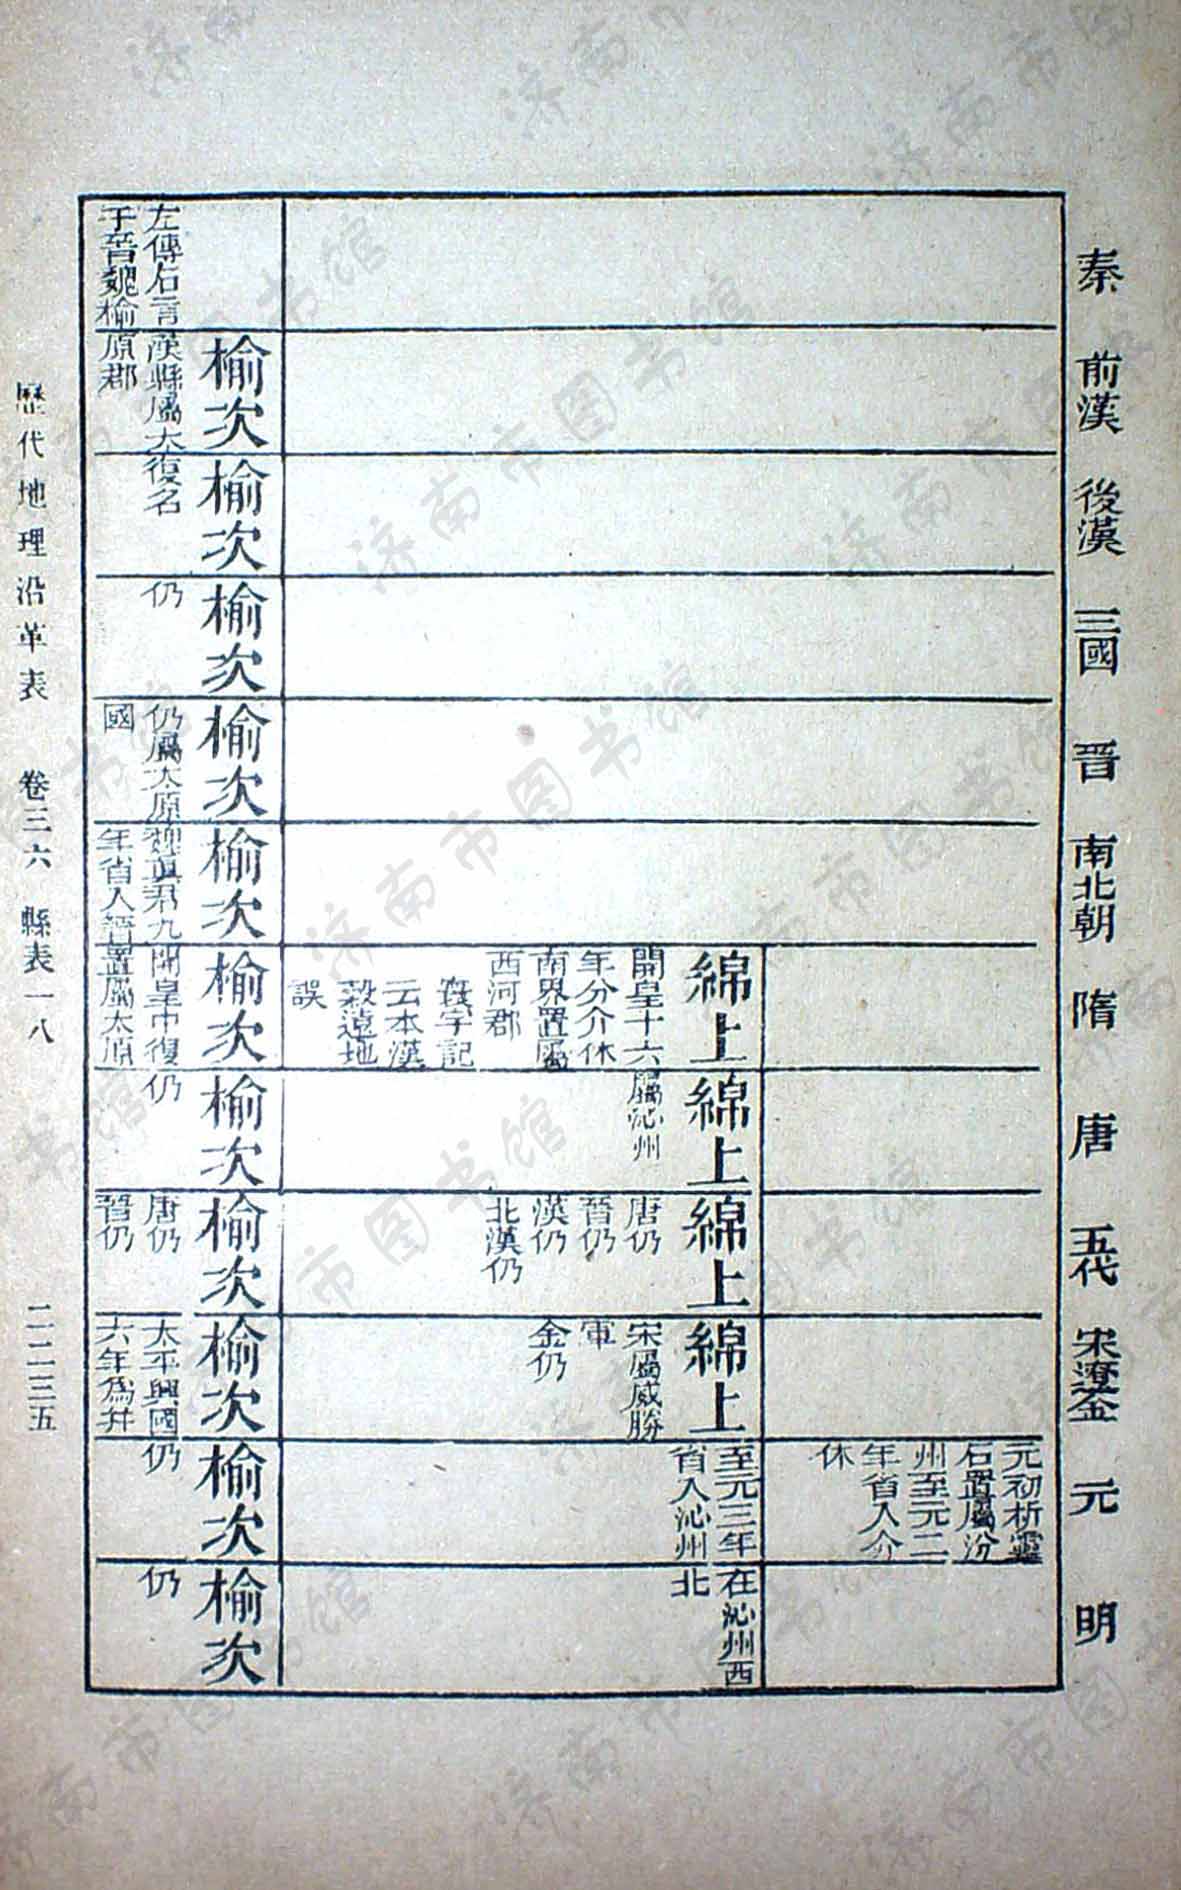 秦
前漢
後漢
三國
晉
南北朝
隋
唐
五代
宋遼金
元
明
元初析靈
石置屬汾
州至元二
年省入介
休
綿上
開皇十六
年分介休
南界置屬
西河郡
寰宇記
云本漢
穀遠地
誤
綿上
屬沁州
綿上
唐仍
晉仍
漢仍
北漢仍
綿上
宋屬威勝
軍
金仍
至元三年
省入沁州
在沁州西
北
左傳石言
于晉魏榆
榆次
漢縣屬太
原郡
榆次
復名
榆次
仍
榆次
仍屬太原
國
榆次
魏真君九
年省入晉
榆次
開皇中復
置屬太原
榆次
仍
榆次
唐仍
晉仍
榆次
太平興國
六年為并
榆次
仍
榆次
仍
歷代地理沿革表 卷三六 縣表一八 二二三五
济南市图书馆